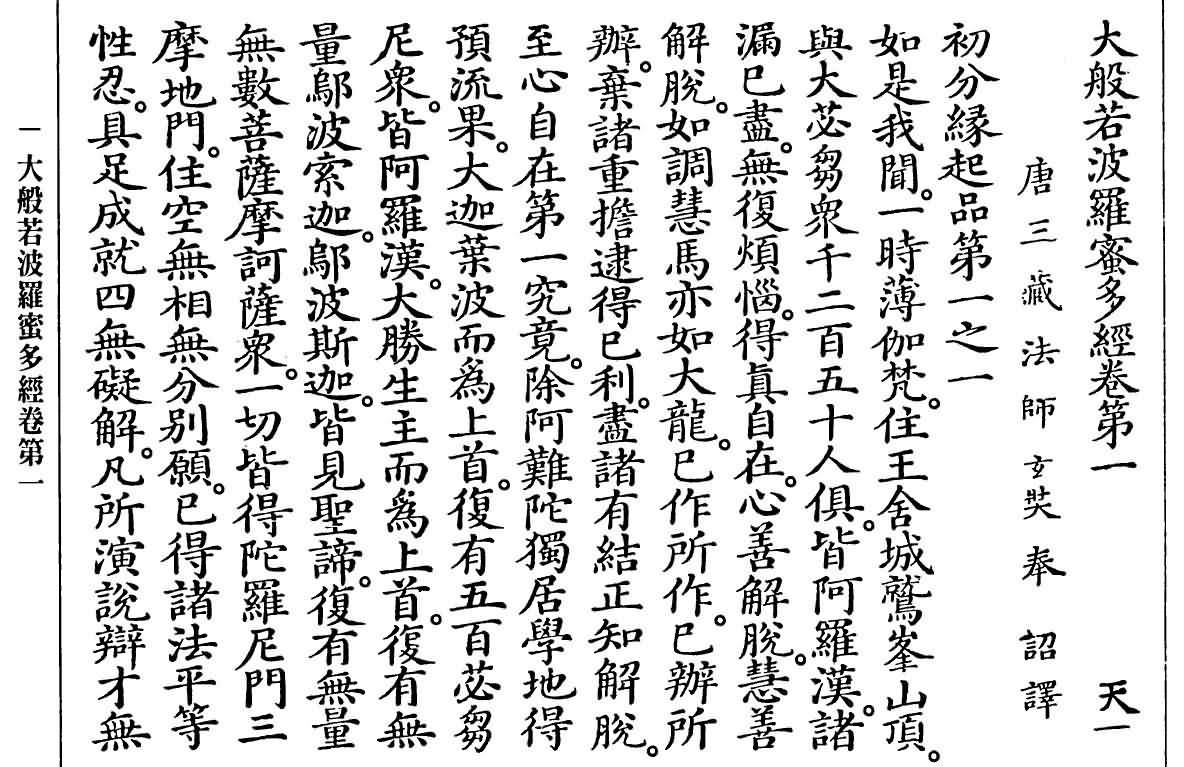 大般若波羅蜜多經卷第一　天一
唐三藏法師玄奘奉　詔譯
初分緣起品第一之一
如是我聞。一時薄伽梵。住王舍城鷲峯山頂。
與大苾芻衆千二百五十人俱。皆阿羅漢。諸
漏已盡。無復煩惱。得眞自在。心善解脫。慧善
解脫。如調慧馬亦如大龍。已作所作。已辦所
辦。棄諸重擔逮得己利。盡諸有結正知解脫。
至心自在第一究竟。除阿難陀獨居學地得
預流果。大迦葉波而爲上首。復有五百苾芻
尼衆。皆阿羅漢。大勝生主而爲上首。復有無
量鄔波索迦。鄔波斯迦。皆見聖諦。復有無量
無數菩薩摩訶薩衆。一切皆得陀羅尼門三
摩地門。住空無相無分别願。已得諸法平等
性忍。具足成就四無礙解。凡所演說辯才無
一　大般若波羅蜜多經卷第一